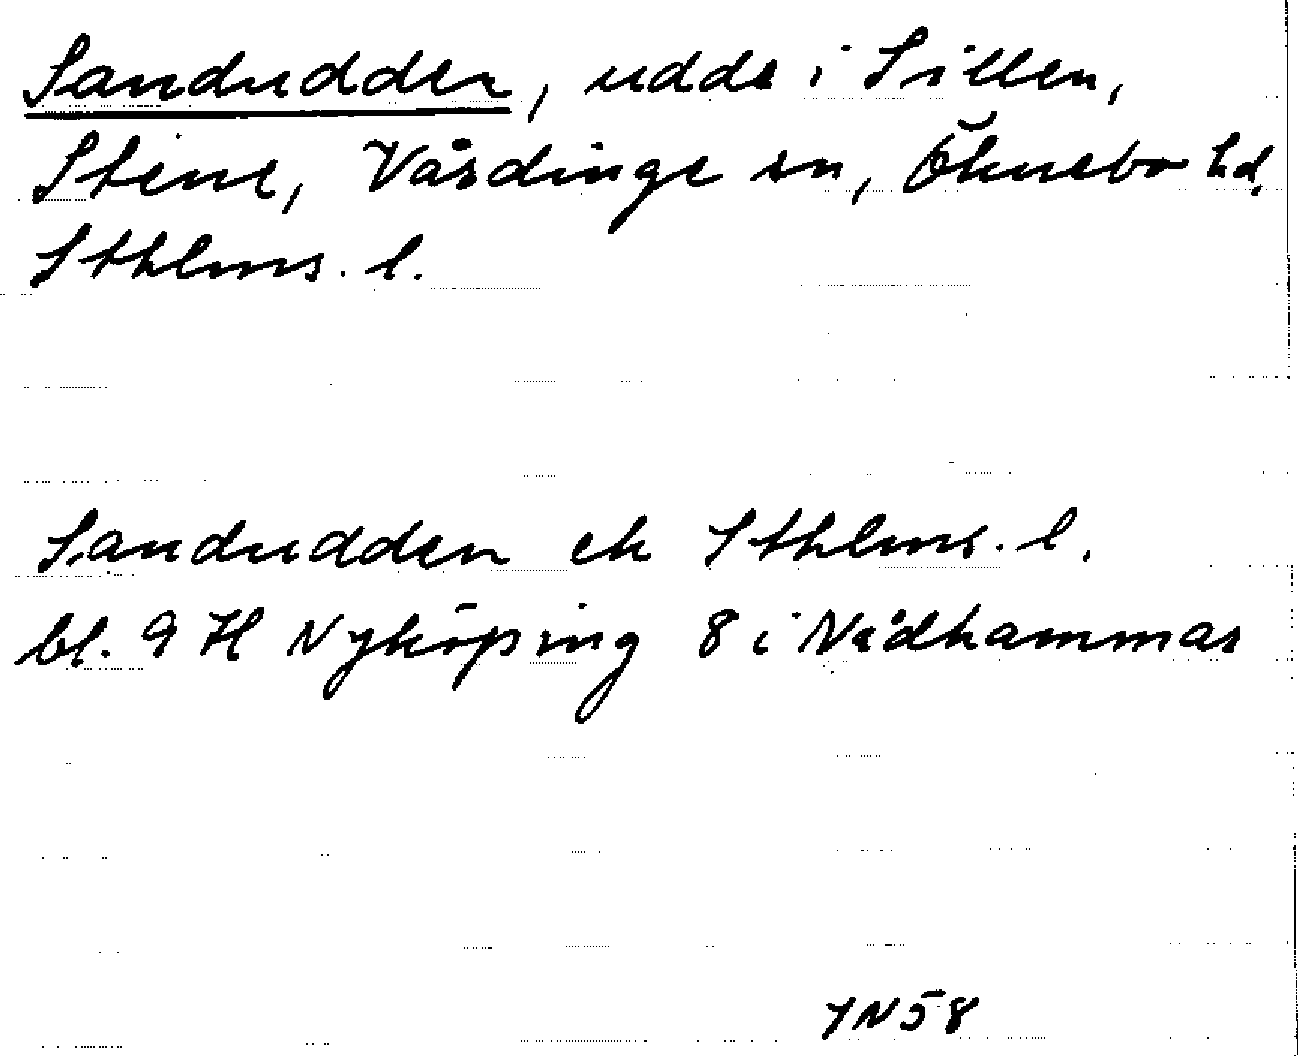 Sandudden, udde i Sillen,
Stene, Vårdinge sn, Öknebo hd,
Sthlms. l.
Sandudden ek Sthlms. l.
bl. 9 H Nyköping 8 i Nådhammar
JN58